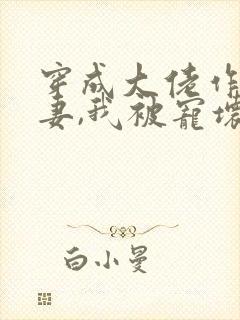 穿成大佬作
妻,我被宠坏
白小曼